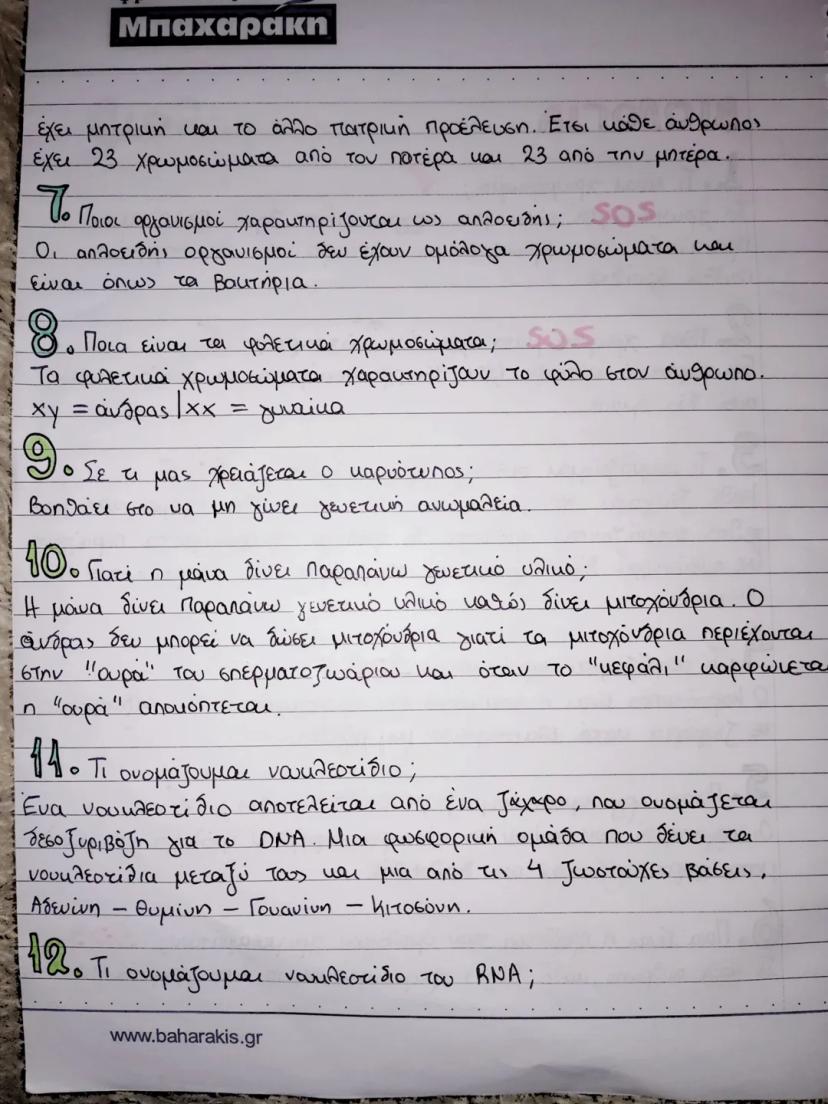 Μπαχαράκη
έχει μητρική και το άλλο πατρική προέλευση. Έτσι κάθε άνθρωπος
έχει 23 χρωμοσώματα από τον πατέρα και 23 από την μητέρα.
7. Ποιοι οργανισμοί χαρακτηρίζονται ως απλοειδής; SOS
Οι απλοειδής οργανισμοί δεν έχουν ομόλογα χρωμοσώματα και
είναι όπως τα βακτήρια.
8. Ποια είναι τα φυλετικά χρωμοσώματα; SOS
Τα φυλετικά χρωμοσώματα χαρακτηρίζουν το φύλο στον άνθρωπο.
xy = άνδρας | xx = γυναίκα
9. Σε τι μας χρειάζεται ο καρυότυπος;
Βοηθάει στο να μη γίνει γενετική ανωμαλεία.
10. Γιατί η μάνα δίνει παραπάνω γενετικό υλικό;
Η μάνα δίνει παραπάνω γενετικό υλικό καθώς δίνει μιτοχόνδρια. Ο
άνδρας δεν μπορεί να δώσει μιτοχόνδρια γιατί τα μιτοχόνδρια περιέχονται
στην "ουρά" του σπερματοζωάριου και όταν το "κεφάλι" καρφώνεται
η "ουρά" αποκόπτεται.
11. Τι ονομάζουμαι νουκλεοτίδιο;
Ένα νουκλεοτίδιο αποτελείται από ένα ζάχαρο, που ονομάζεται
δεσοξυριβόζη για το DNA. Μια φωσφορική ομάδα που δένει τα
νουκλεοτίδια μεταξύ τους και μια από τις 4 Ζωστούχες βάσεις.
Αδενίνη - Θυμίνη - Γουανίνη - Κιτοσόνη.
12. Τι ονομάζουμαι νουκλεοτίδιο του RNA;
www.baharakis.gr